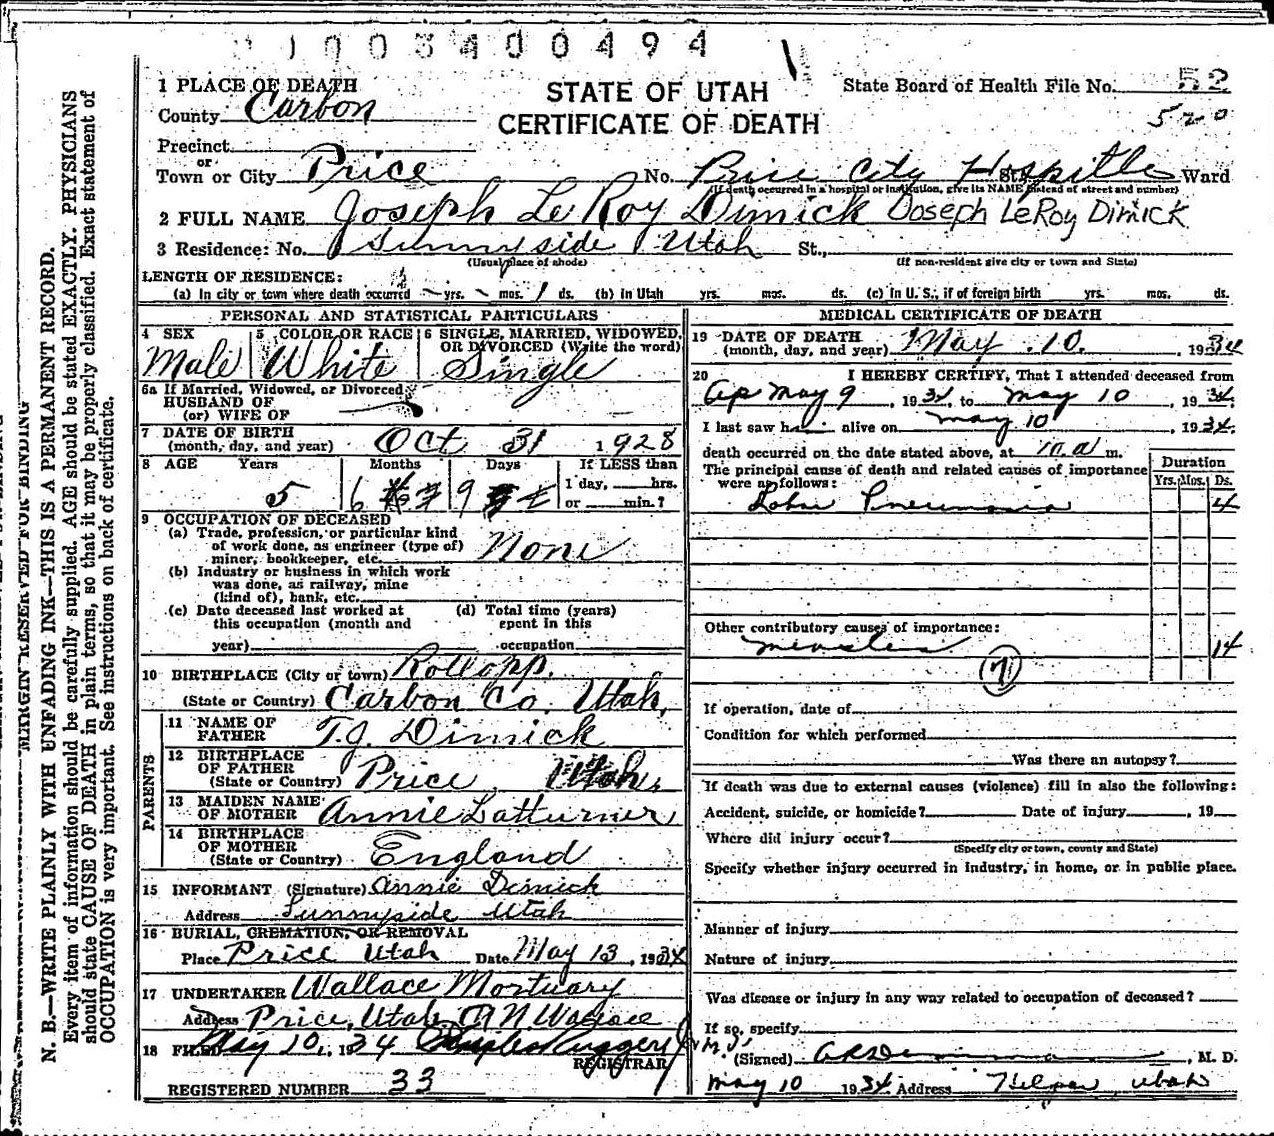 1003400494
1 PLACE OF DEATH
County Carbon
STATE OF UTAH
CERTIFICATE OF DEATH
State Board of Health File No. 52
520
Precinct
or
Town or City Price No. Price City Hospitle St. Ward
(If death occurred in a hospital or institution, give its NAME instead of street and number)
2 FULL NAME Joseph LeRoy Dimick Joseph LeRoy Dimick
3 Residence: No. Sunnyside Utah St.,
(Usual place of abode) (If non-resident give city or town and State)
LENGTH OF RESIDENCE:
(a) In city or town where death occurred - yrs. - mos. 1 ds. (b) In Utah yrs. mos. ds. (c) In U. S., if of foreign birth yrs. mos. ds.
PERSONAL AND STATISTICAL PARTICULARS
4 SEX
Male
5 COLOR OR RACE
White
6 SINGLE, MARRIED, WIDOWED,
OR DIVORCED (Write the word)
Single
6a If Married, Widowed, or Divorced
HUSBAND OF
(or) WIFE OF
7 DATE OF BIRTH
(month, day, and year) Oct 31 1928
8 AGE Years Months Days If LESS than
5 6 9 1 day, hrs.
or min.?
9 OCCUPATION OF DECEASED
(a) Trade, profession, or particular kind
of work done, as engineer (type of)
miner, bookkeeper, etc. None
(b) Industry or business in which work
was done, as railway, mine
(kind of), bank, etc.
(c) Date deceased last worked at
this occupation (month and
year)
(d) Total time (years)
spent in this
occupation
10 BIRTHPLACE (City or town) Rollapp
(State or Country) Carbon Co. Utah.
PARENTS
11 NAME OF
FATHER T.J. Dimick
12 BIRTHPLACE
OF FATHER
(State or Country) Price, Utah.
13 MAIDEN NAME
OF MOTHER Annie Latturner
14 BIRTHPLACE
OF MOTHER
(State or Country) England
15 INFORMANT (Signature) Annie Dimick
Address Sunnyside Utah
16 BURIAL, CREMATION, OR REMOVAL
Place Price Utah Date May 13, 1934
17 UNDERTAKER Wallace Mortuary
Address Price, Utah A N Wallace
18 FILED May 10, 1934
REGISTRAR
REGISTERED NUMBER 33
MEDICAL CERTIFICATE OF DEATH
19 DATE OF DEATH
(month, day, and year) May 10. , 1934
20 I HEREBY CERTIFY, That I attended deceased from
May 9 , 1934, to May 10 , 1934.
I last saw h alive on May 10 , 1934.
death occurred on the date stated above, at 10 a m.
The principal cause of death and related causes of importance
were as follows:
Duration
Yrs. Mos. Ds.
Lobar Pneumonia 4
Other contributory causes of importance:
measles 14
7
If operation, date of
Condition for which performed
Was there an autopsy?
If death was due to external causes (violence) fill in also the following:
Accident, suicide, or homicide? Date of injury , 19
Where did injury occur?
(Specify city or town, county and State)
Specify whether injury occurred in industry, in home, or in public place.
Manner of injury
Nature of injury
Was disease or injury in any way related to occupation of deceased?
If so, specify
(Signed) , M. D.
May 10 1934 Address Helper Utah
MARGIN RESERVED FOR BINDING
N. B.—WRITE PLAINLY WITH UNFADING INK—THIS IS A PERMANENT RECORD.
Every item of information should be carefully supplied. AGE should be stated EXACTLY. PHYSICIANS
should state CAUSE OF DEATH in plain terms, so that it may be properly classified. Exact statement of
OCCUPATION is very important. See instructions on back of certificate.